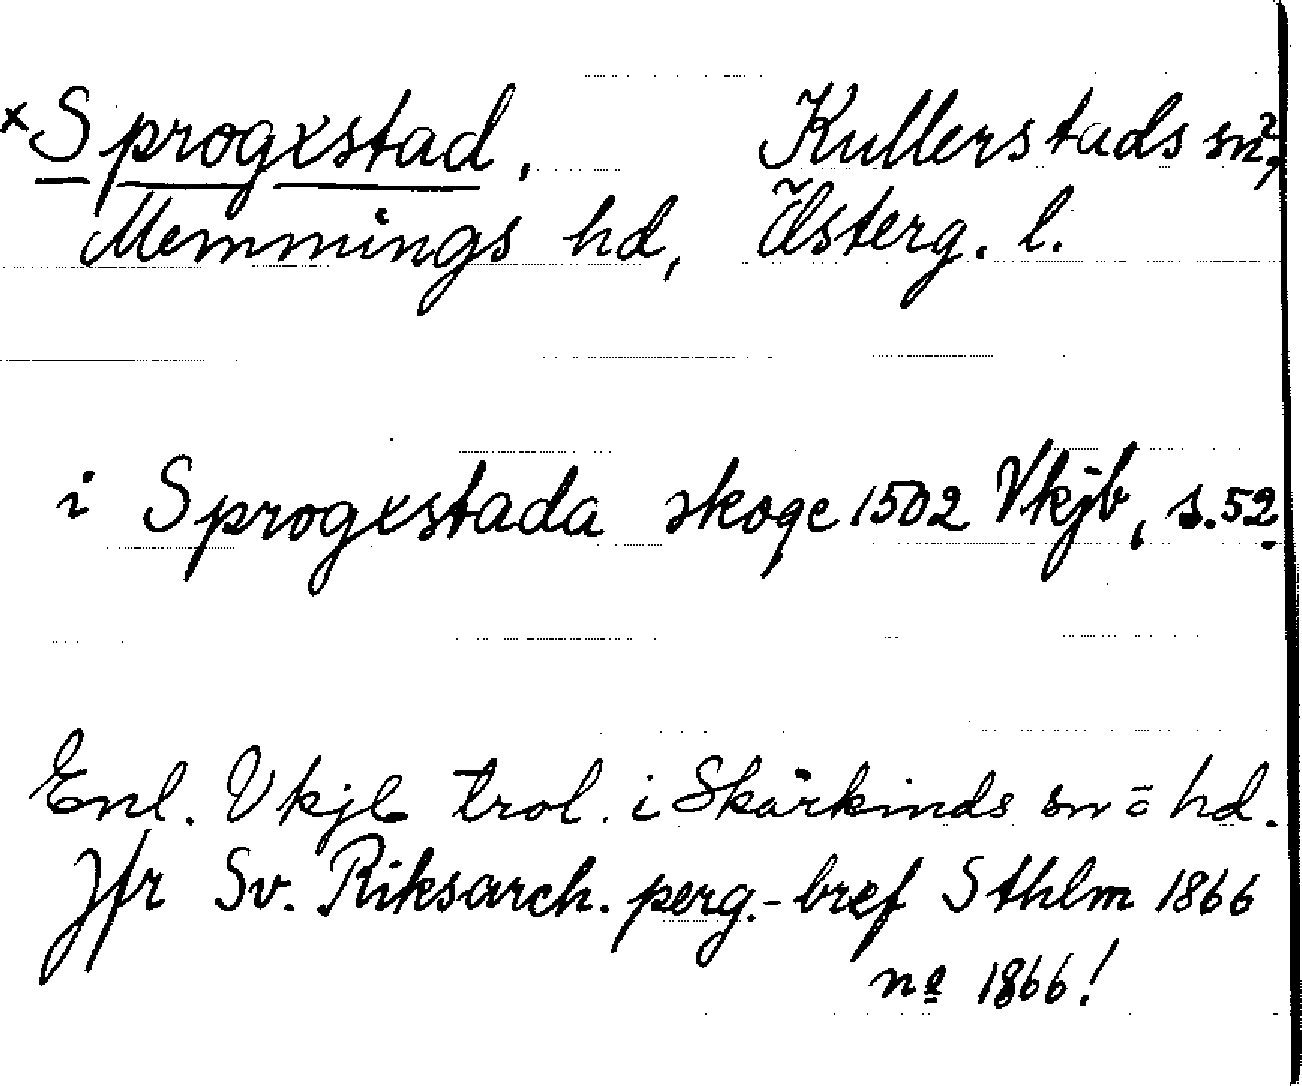 ×Sprogxstad, Kullerstads sn?,
Memmings hd, Österg. l.
i Sprogxstada skoge 1502 Vkjb, s. 52
Enl. Vkjb trol. i Skärkinds sn o hd.
Jfr Sv. Riksarch. perg.-bref Sthlm 1866
no 1866!